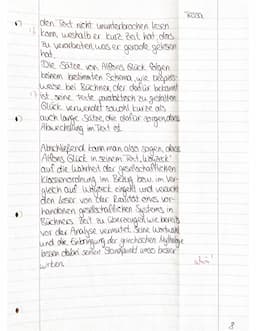 den Text nicht ununterbrochen lesen
kann, weshalb er kurz Zeit hat, das
zu verarbeiten, was er gerade gelesen
hat.
Die Sätze von Alfons Glück folgen
keinem bestimmten Schema, wie beispiels-
weise bei Büchner, der dafür bekannt
ist seine Texte parataktisch zu gestalten.
Glück verwendet sowohl kurze als
auch lange Sätze, die dafür sorgen, dass
Abwechslung im Text ist.
Abschließend kann man also sagen, dass
Alfons Glück in seinem Text "Woyzeck"
auf die Wahrheit der gesellschaftlichen
Klassenordnung im Bezug bzw. im Ver-
gleich auf Woyzeck eingeht und versucht
den Leser von der Realität eines vor-
handenen gesellschaftlichen Systems in
Büchners Zeit zu überzeugen, wie bereits
vor der Analyse vermutet. Seine Wortwahl
und die Einbringung der griechischen Mythologie
lassen dabei seinen Standpunkt umso besser
wirken.
8